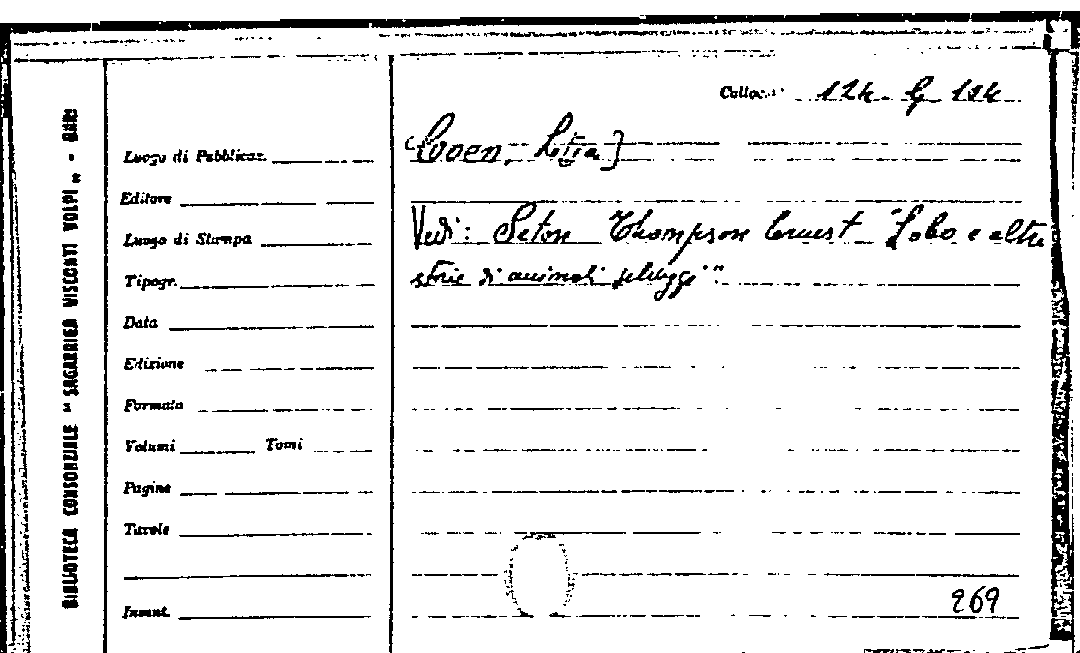 BIBLIOTECA CONSORZIALE "SAGARRIGA VISCONTI VOLPI" - BARI
Colloc. 124. G 194
[Coen, Letizia]
Vedi: Seton Thompson Ernest "Lobo e altre
storie di animali selvaggi".
Luogo di Pubblicaz.
Editore
Luogo di Stampa
Tipogr.
Data
Edizione
Formato
Volumi Tomi
Pagine
Tavole
Invent.
269